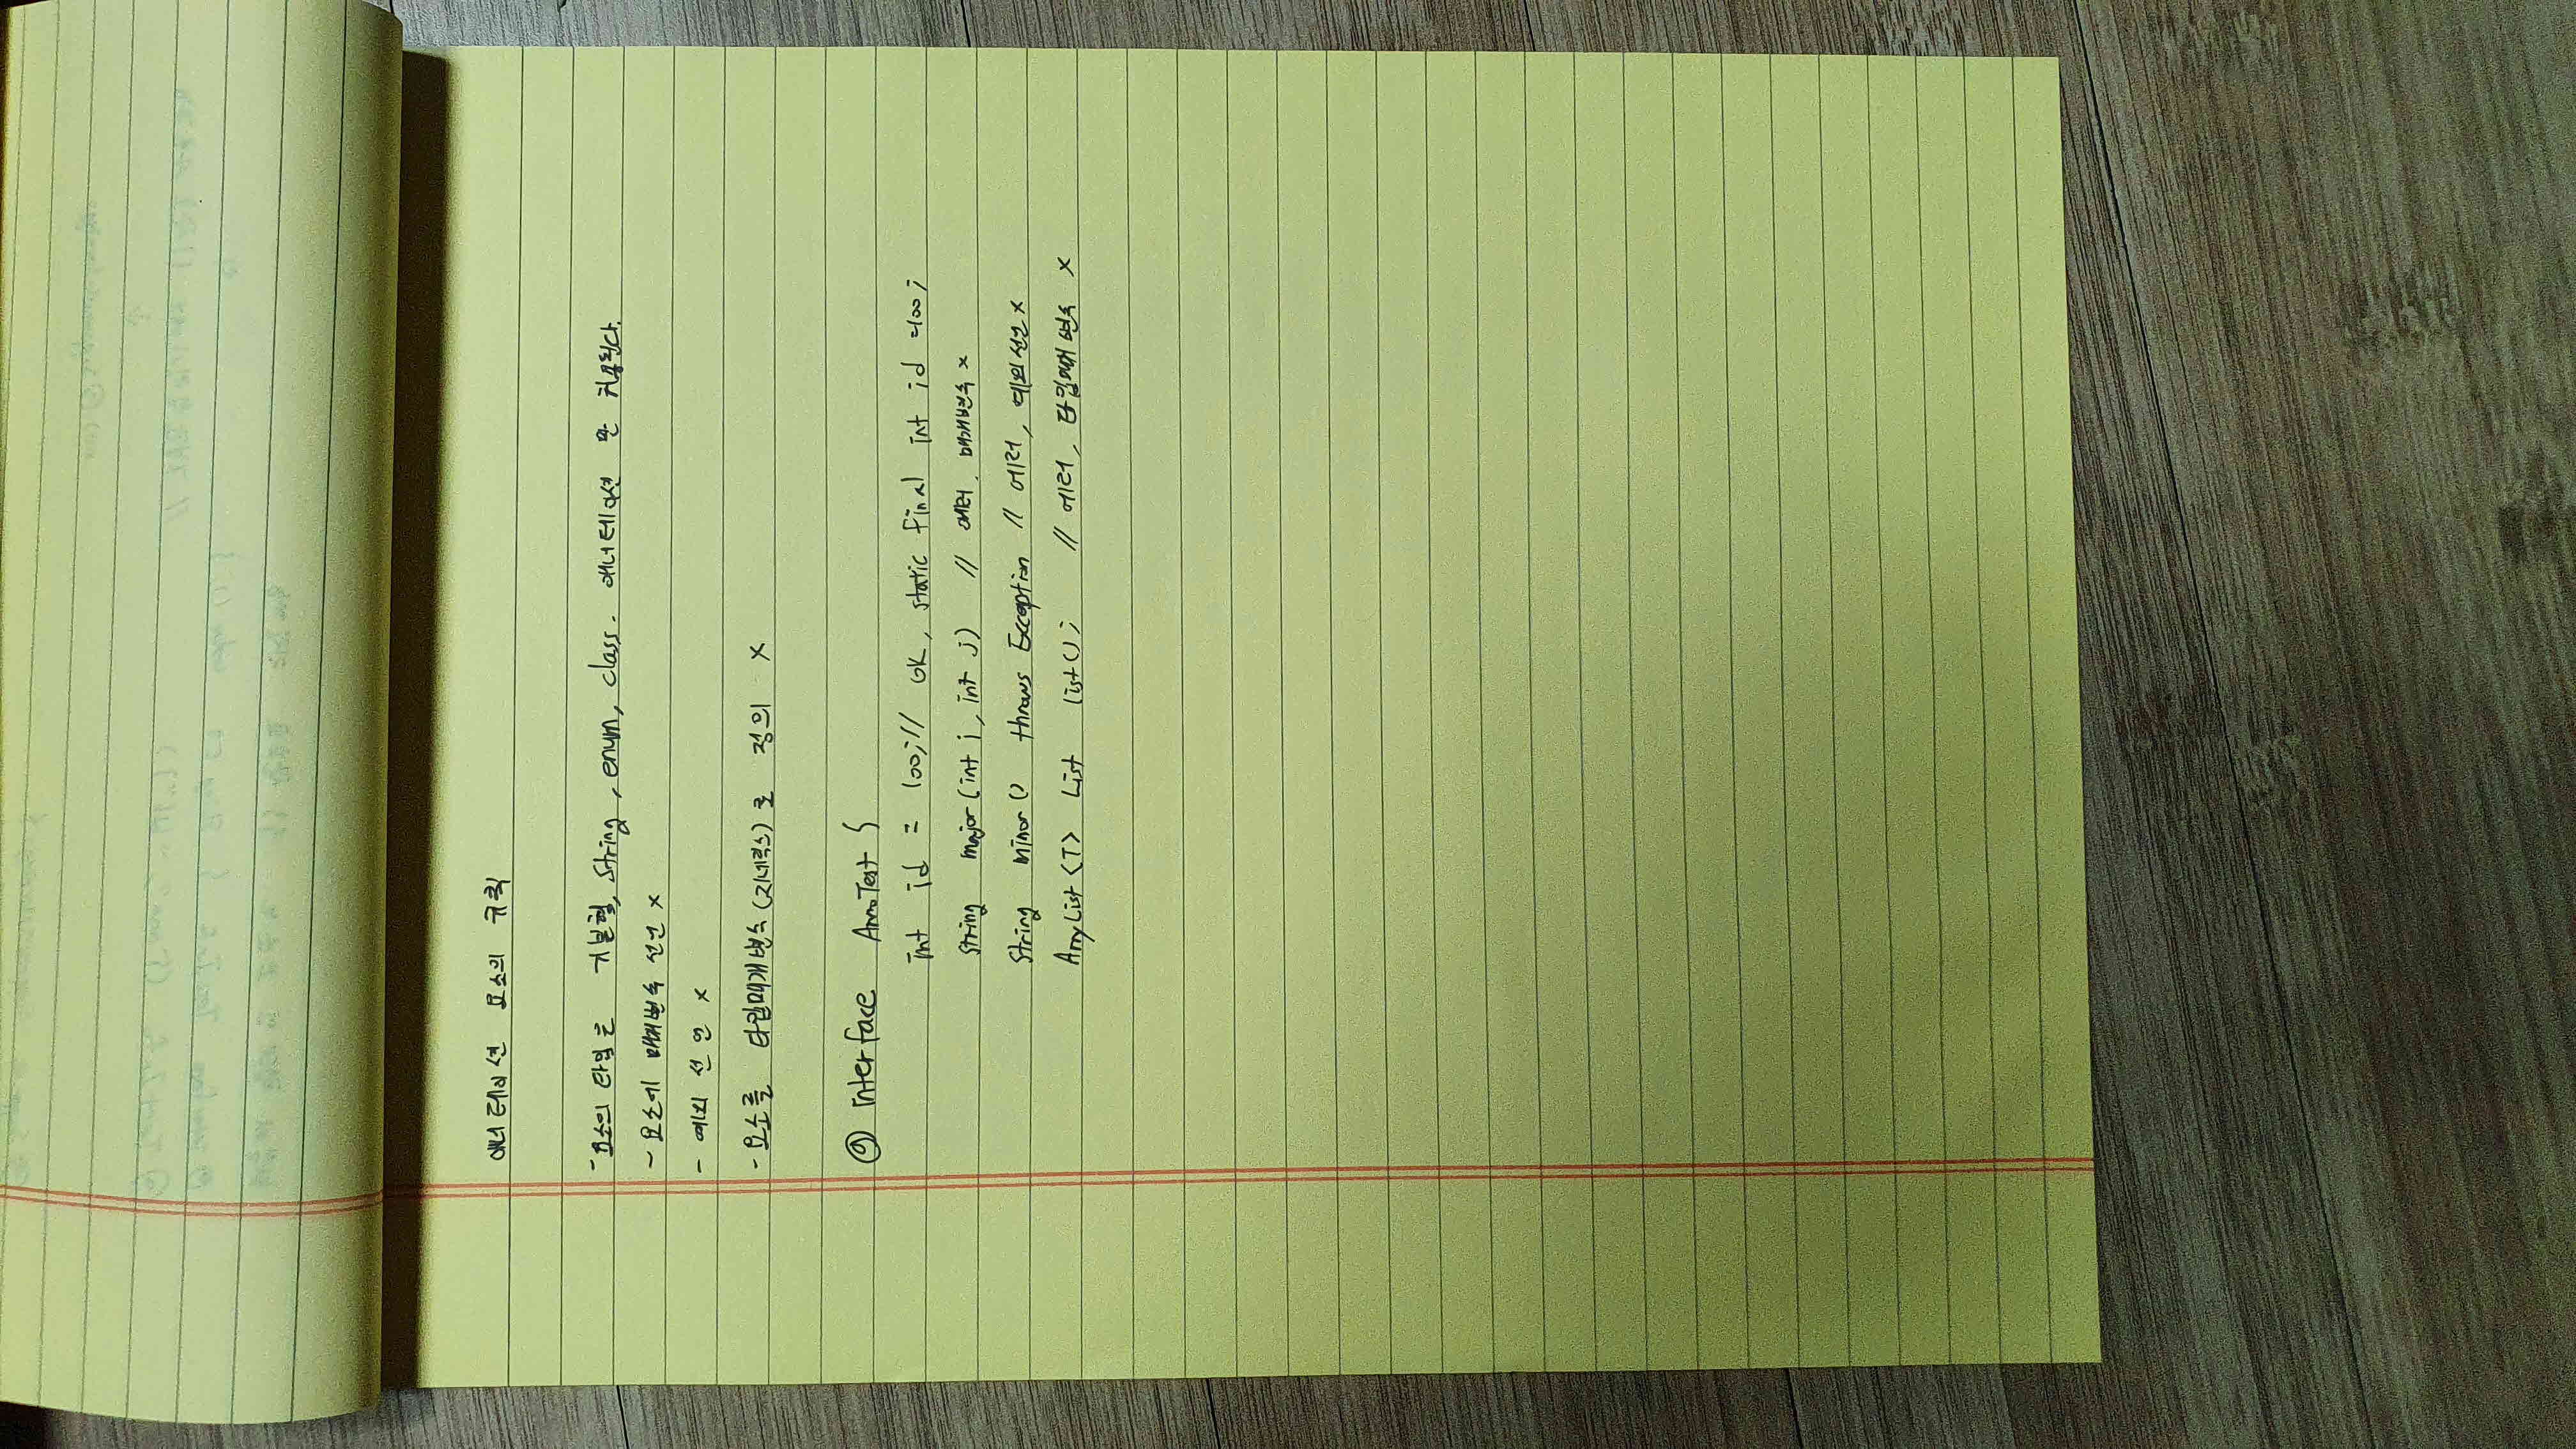 애너테이션 요소의 규칙
- 요소의 타입은 기본형, String, enum, class. 애너테이션 만 허용된다.
- 요소에 매개변수 선언 x
- 예외 선언 x
- 요소를 타입매개변수(지네릭스)로 정의 x
@ interface AnnoTest {
int id = 100; // OK, static final int id =100;
String major(int i, int j) // 에러, 매개변수 x
String minor() throws Exception // 에러, 예외선언 x
ArryList<T> List list(); // 에러, 타입매개변수 x